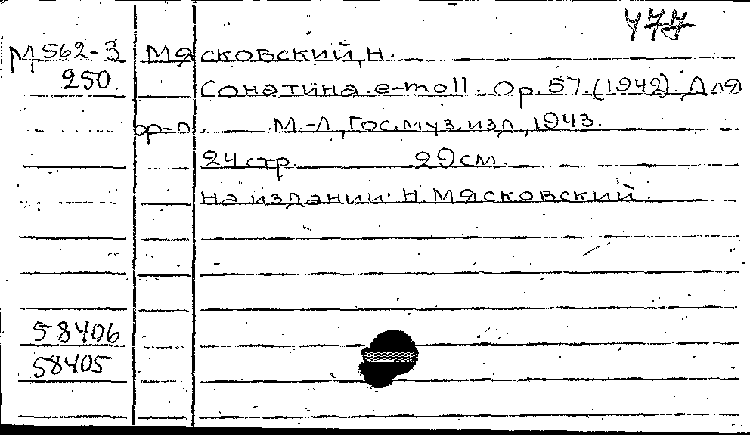 477
М 562-3 Мясковский, Н.
250 Сонатина e-moll. Op. 57. (1942). Для
ф-п. М.-Л., Гос. муз. изд., 1943.
24 стр. 29 см.
На издании: Н. Мясковский.
58406
58405